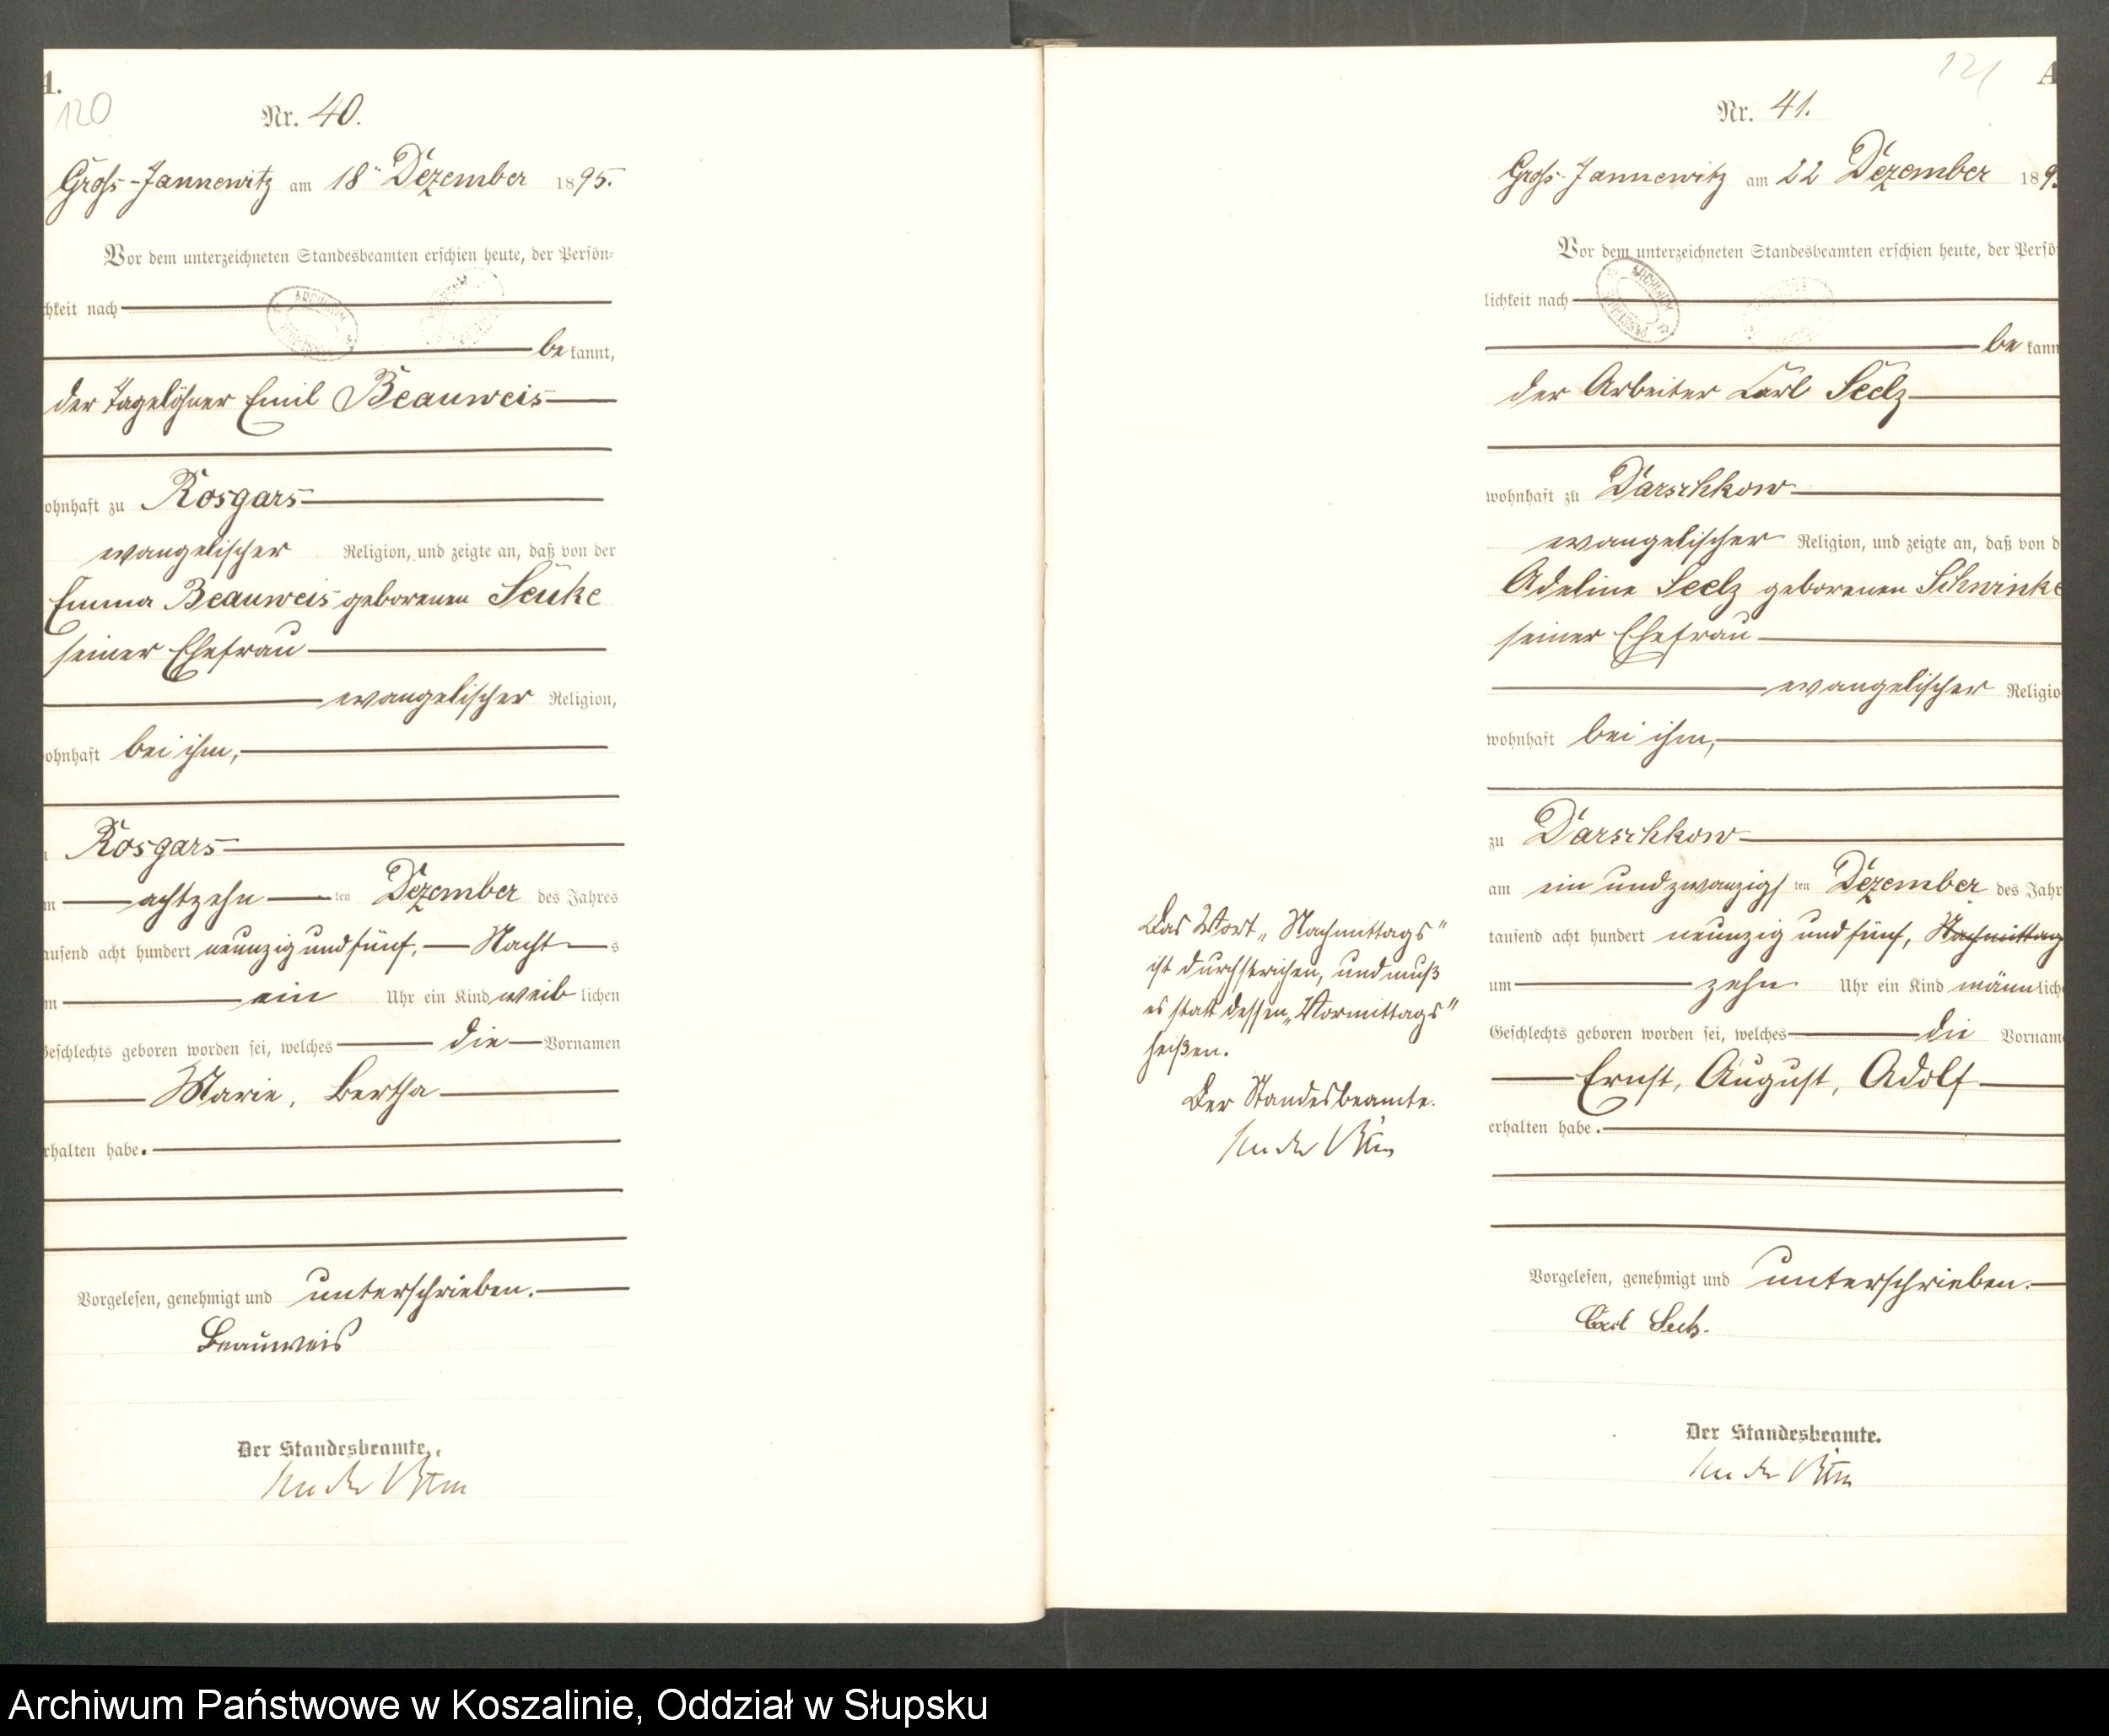 A.
120
Nr. 40.
Groß-Jannewitz am 18ten Dezember 1895.
Vor dem unterzeichneten Standesbeamten erschien heute, der Persön-
chkeit nach
be kannt,
der Tagelöhner Emil Beauweis
ohnhaft zu Rosgars
evangelischer Religion, und zeigte an, daß von der
Emma Beauweis geborenen Seuke
seiner Ehefrau
evangelischer Religion,
ohnhaft bei ihm,
Rosgars
m achtzehn ten Dezember des Jahres
ausend acht hundert neunzig und fünf, Nacht s
m ein Uhr ein Kind weib lichen
Geschlechts geboren worden sei, welches die Vornamen
Marie, Bertha
rhalten habe.
Vorgelesen, genehmigt und unterschrieben.
Beauweis
Der Standesbeamte.
121
A
Nr. 41.
Groß-Jannewitz am 22 Dezember 189
Vor dem unterzeichneten Standesbeamten erschien heute, der Persö
lichkeit nach
be kann
der Arbeiter Carl Seelz
wohnhaft zu Darschkow
evangelischer Religion, und zeigte an, daß von d
Adeline Seelz geborenen Schwinke
seiner Ehefrau
evangelischer Religio
wohnhaft bei ihm,
zu Darschkow
am ein und zwanzigs ten Dezember des Jahr
tausend acht hundert neunzig und fünf, Nachmittag
um zehn Uhr ein Kind männ lich
Geschlechts geboren worden sei, welches die Vornam
Ernst, August, Adolf
erhalten habe.
Das Wort „Nachmittags"
ist durchstrichen, und muß
es statt dessen „Vormittags"
heißen.
Der Standesbeamte.
Vorgelesen, genehmigt und unterschrieben.
Carl Seelz.
Der Standesbeamte.
Archiwum Państwowe w Koszalinie, Oddział w Słupsku